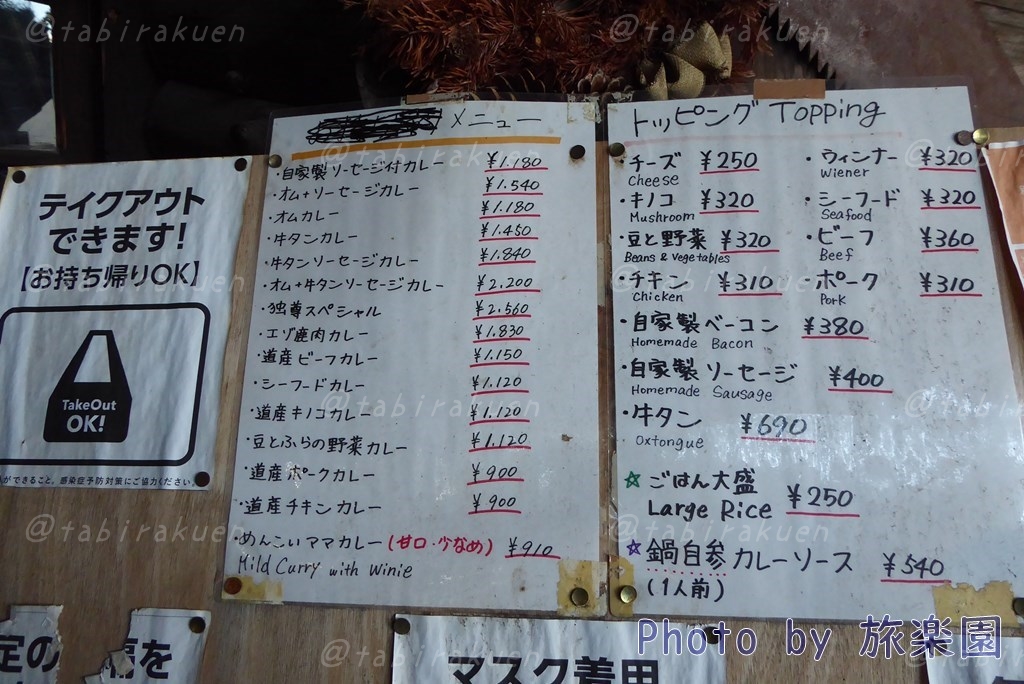 @tabirakuen
@tabirakuen
@tabirakuen
テイクアウト
できます!
【お持ち帰りOK】
TakeOut
OK!
ができること。感染症予防対策にご協力ください。
メニュー
・自家製ソーセージ付カレー ¥1.180
・オム+ソーセージカレー ¥1.540
・オムカレー ¥1.180
・牛タンカレー ¥1.450
・牛タンソーセージカレー ¥1.840
・オム+牛タンソーセージカレー ¥2.200
・独尊スペシャル ¥2.560
・エゾ鹿肉カレー ¥1.830
・道産ビーフカレー ¥1.150
・シーフードカレー ¥1.120
・道産キノコカレー ¥1.120
・豆とふらの野菜カレー ¥1.120
・道産ポークカレー ¥900
・道産チキンカレー ¥900
・めんこいママカレー(甘口・少なめ) ¥910
Mild Curry with Winie
トッピング Topping
・チーズ ¥250
Cheese
・ウィンナー ¥320
Wiener
・キノコ ¥320
Mushroom
・シーフード ¥320
Seafood
・豆と野菜 ¥320
Beans & Vegetables
・ビーフ ¥360
Beef
・チキン ¥310
Chicken
・ポーク ¥310
Pork
・自家製ベーコン ¥380
Homemade Bacon
・自家製ソーセージ ¥400
Homemade Sausage
・牛タン ¥690
Oxtongue
☆ごはん大盛 ¥250
Large Rice
☆鍋自参カレーソース ¥540
(1人前)
@tabirakuen
@tabirakuen
@tabirakuen
@tabirakuen
@tabirakuen
@tabirakuen
@tabirakuen
@tabirakuen
@tabirakuen
@tabirakuen
定の
幅を
マスク着用
Photo by 旅楽園